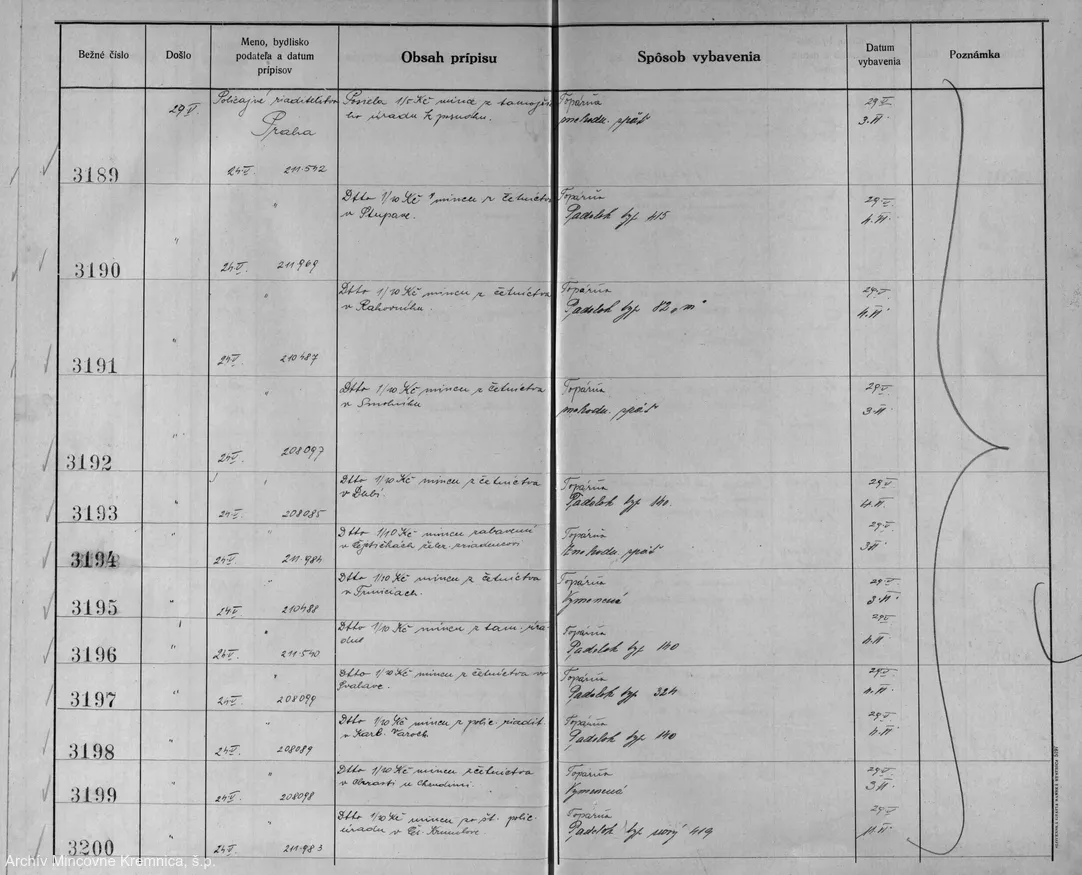 Bežné číslo
Došlo
Meno, bydlisko
podateľa a datum
prípisov
Obsah prípisu
Spôsob vybavenia
Datum
vybavenia
Poznámka
3189
29 V.
Policajné riaditelstvo
Praha
24 V. 211.542
Posiela 1/5 Kč mince z
úradu k posudku.
Topárňa
nehodu. späť
29 V.
3. VI
3190
"
"
24 V. 211.969
Dtto 1/10 Kč mincu z četníctva
v Stupave.
Topárňa
Padelok typ 415
29 V.
4. VI
3191
"
"
24 V. 210487
Dtto 1/10 Kč mincu z četníctva
v Rakovníku.
Topárňa
Padelok typ 82 "m"
29. V.
4. VI
3192
"
"
24 V. 208097
Dtto 1/10 Kč mincu z četníctva
v Smolníku
Topárňa
nehodu. späť
29 V.
3. VI
3193
"
24 V. 208085
Dtto 1/10 Kč mincu z četníctva
v Dubí
Topárňa
Padelok typ 140.
29 V
4. VI
3194
"
24 V. 211.984
Dtto 1/10 Kč mincu zabavenú
v želez. zriadencovi
Topárňa
späť
29 V.
3 VI
3195
"
"
24 V. 210488
Dtto 1/10 Kč mincu z četníctva
v
Topárňa
Vymenená
29 V.
3. VI
3196
"
"
24 V. 211.540
Dtto 1/10 Kč mincu z tam. úra-
du
Topárňa
Padelok typ 140
29 V
4. VI
3197
"
"
24 V. 208099
Dtto 1/10 Kč mincu z četníctva vo
Topárňa
Padelok typ 324
29 V.
4. VI.
3198
"
"
24 V. 208089
Dtto 1/10 Kč mincu z polic. riadit.
v Karl. Varoch.
Topárňa
Padelok typ 140
29 V.
4. VI
3199
"
"
24 V. 208098
Dtto 1/10 Kč mincu z četníctva
v Chrasti u Chrudimi.
Topárňa
Vymenená
29 V.
3 VI
3200
"
"
24 V. 211.983
Dtto 1/10 Kč mincu zo št. polic.
úradu v Čes. Krumlove.
Topárňa
Padelok typ nový 419
29 V
11. VI
Archív Mincovne Kremnica, š.p.